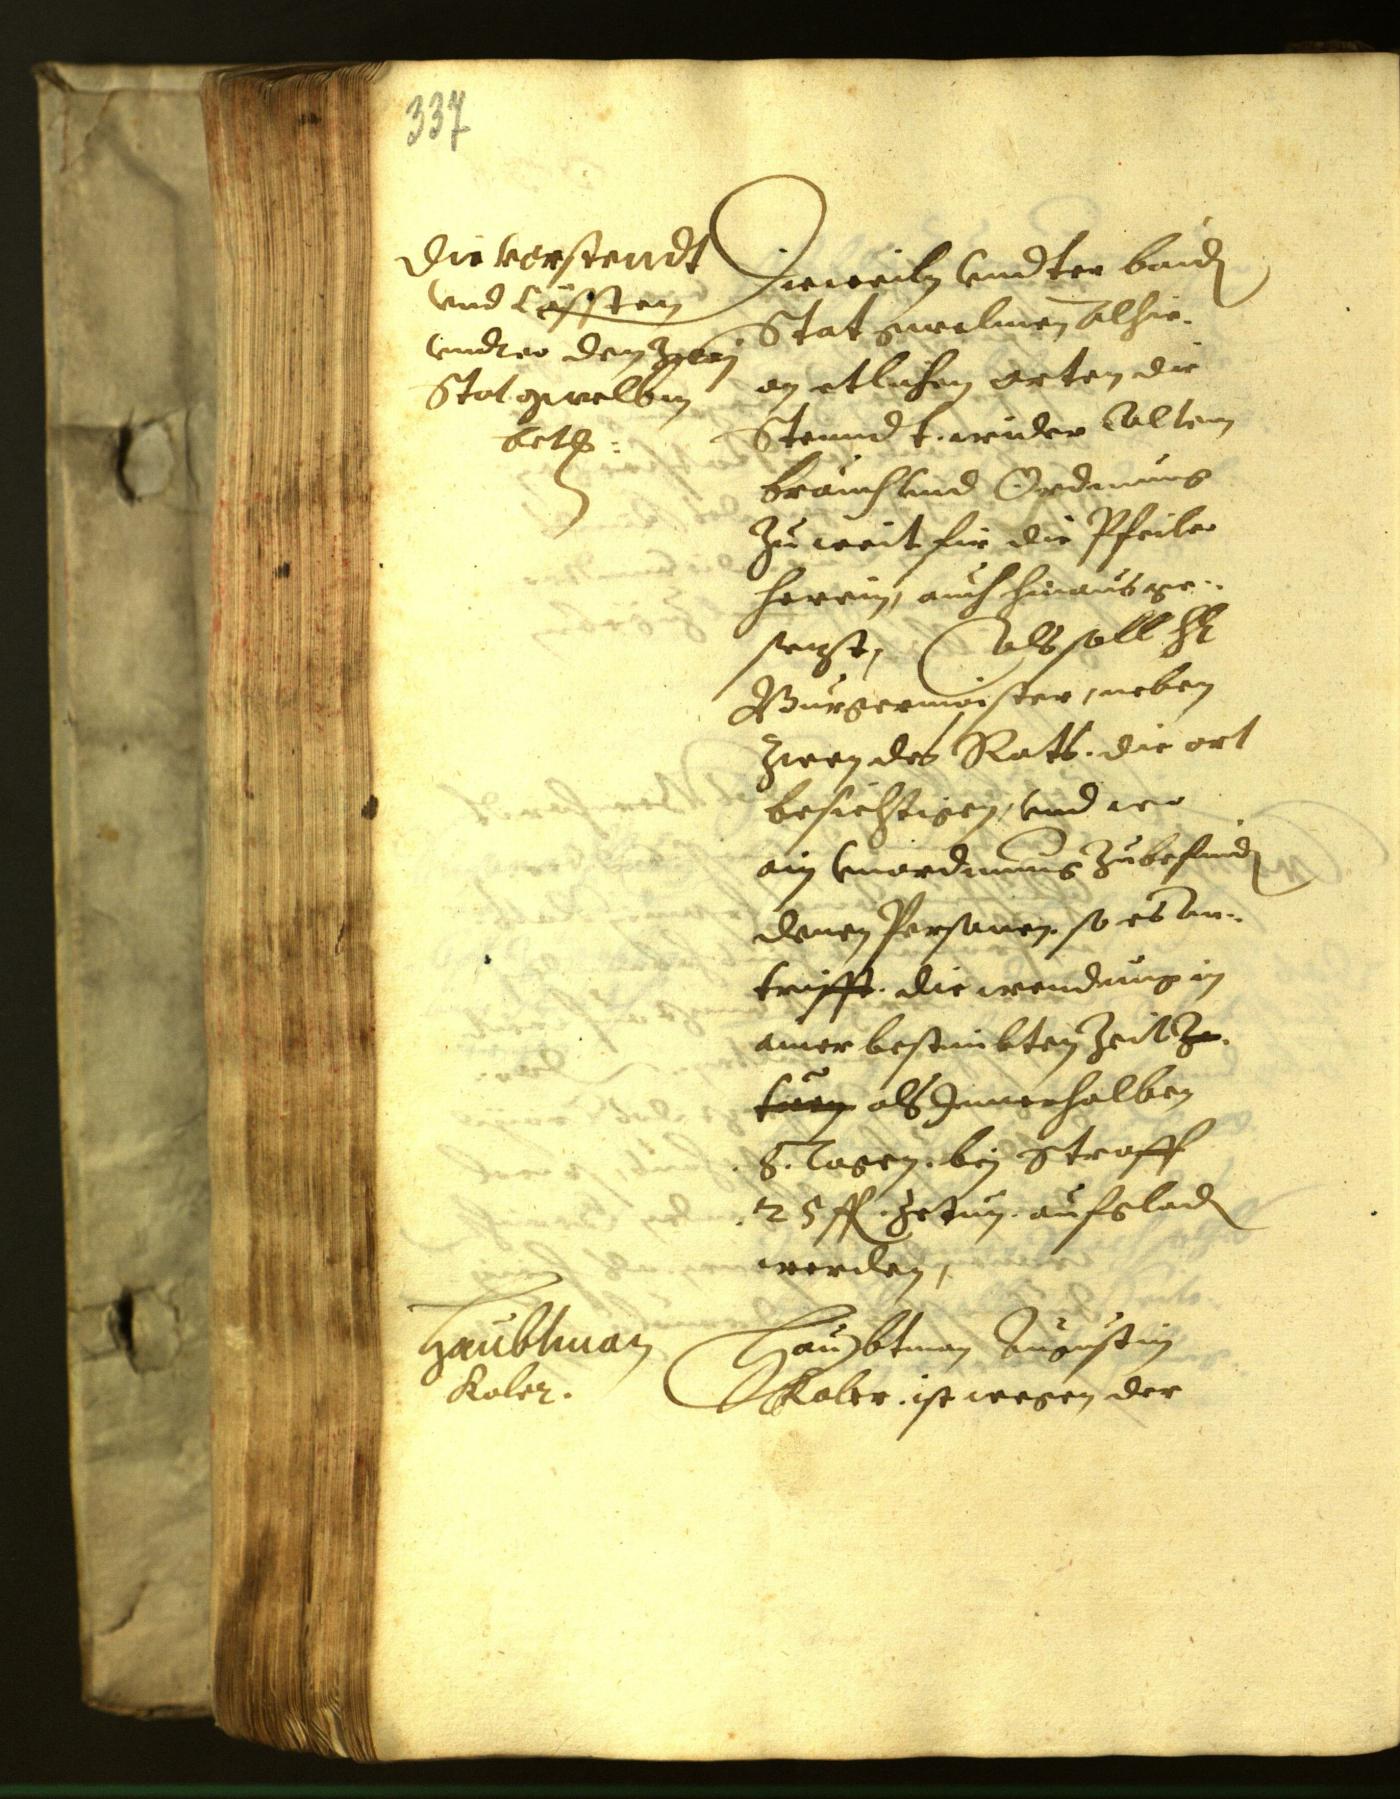 337
Die verstendt
vnd Cässten
vndter den zwej
Statgwelben
betr:
Dieweiln vndter baid
Stat gwelmen alhie.
an etlichen orten die
Stenndt. wider alten
brauch vnd Ordnung
zu weit für die Pfeiler
herein, auch hinaus ge-
sezt, Als soll Hr
Burgermaister, neben
zwen des Rats. die ort
besichtigen, vnd wo
ain vnordnung zubefind
denen Personen. so es an-
trifft. die wendung in
ainer bestimbten Zeit zu.
tuen als Innerhalben
8. Tagen. bej Straff
25 fl. zetun. auferladn
werden,
Haubtman
Koler.
Haubtman Augustin
Koler. ist wegen der